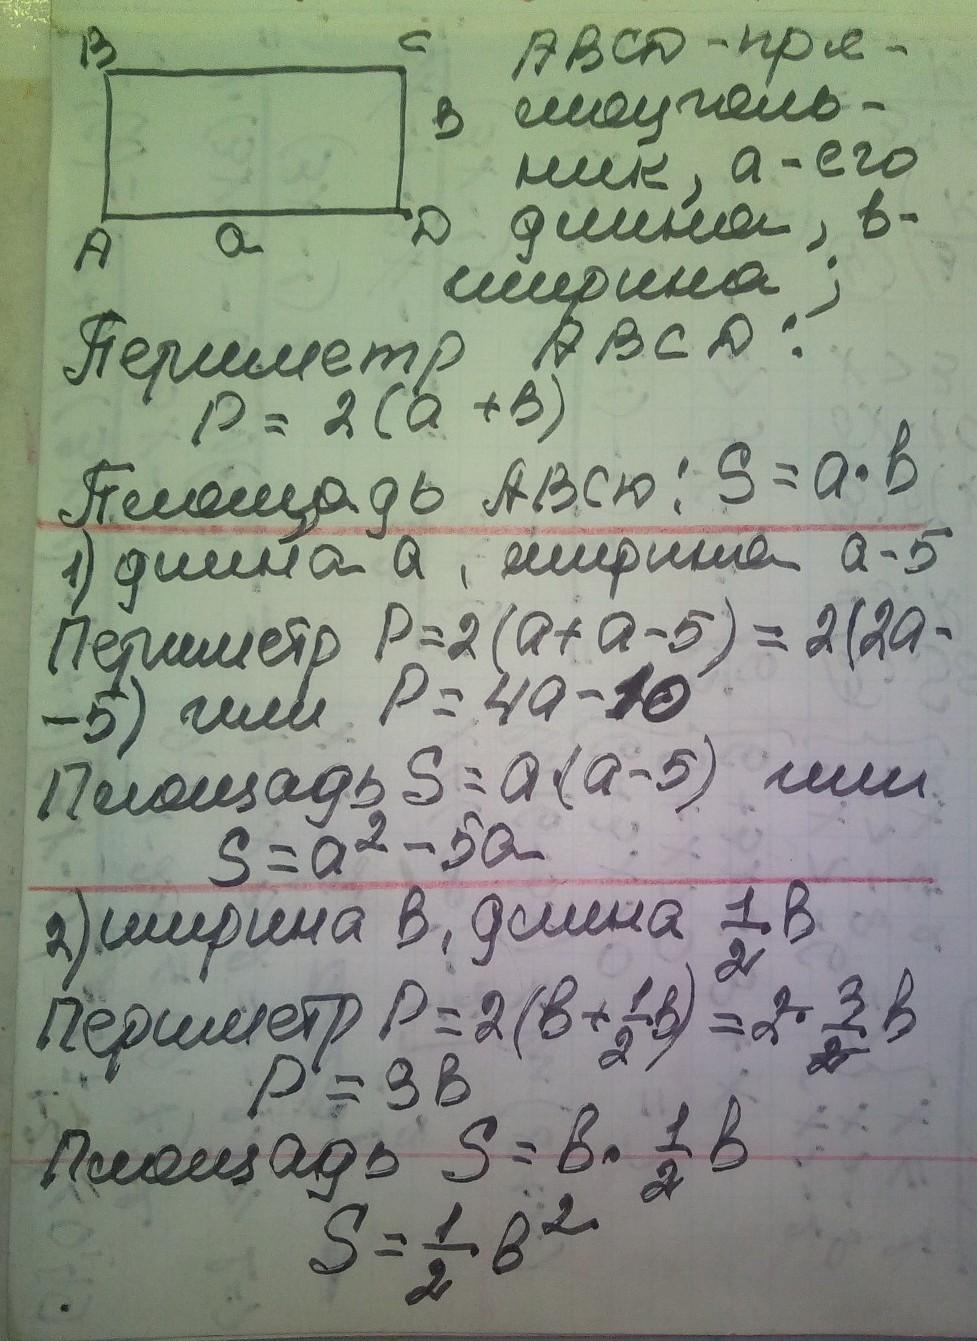 B C
B
A a D
ABCD - пря-
моуголь-
ник, а - его
длина, в -
ширина;
Периметр ABCD:
P = 2(a + в)
Площадь ABCD: S = a·b
1) длина a, ширина a-5
Периметр P=2(a+a-5) = 2(2a-
-5) или P = 4a-10
Площадь S = a·(a-5) или
S = a² - 5a
2) ширина в, длина 1/2 в
Периметр P = 2(в + 1/2 в) = 2· 3/2 в
P = 3в
Площадь S = в· 1/2 в
S = 1/2 в²